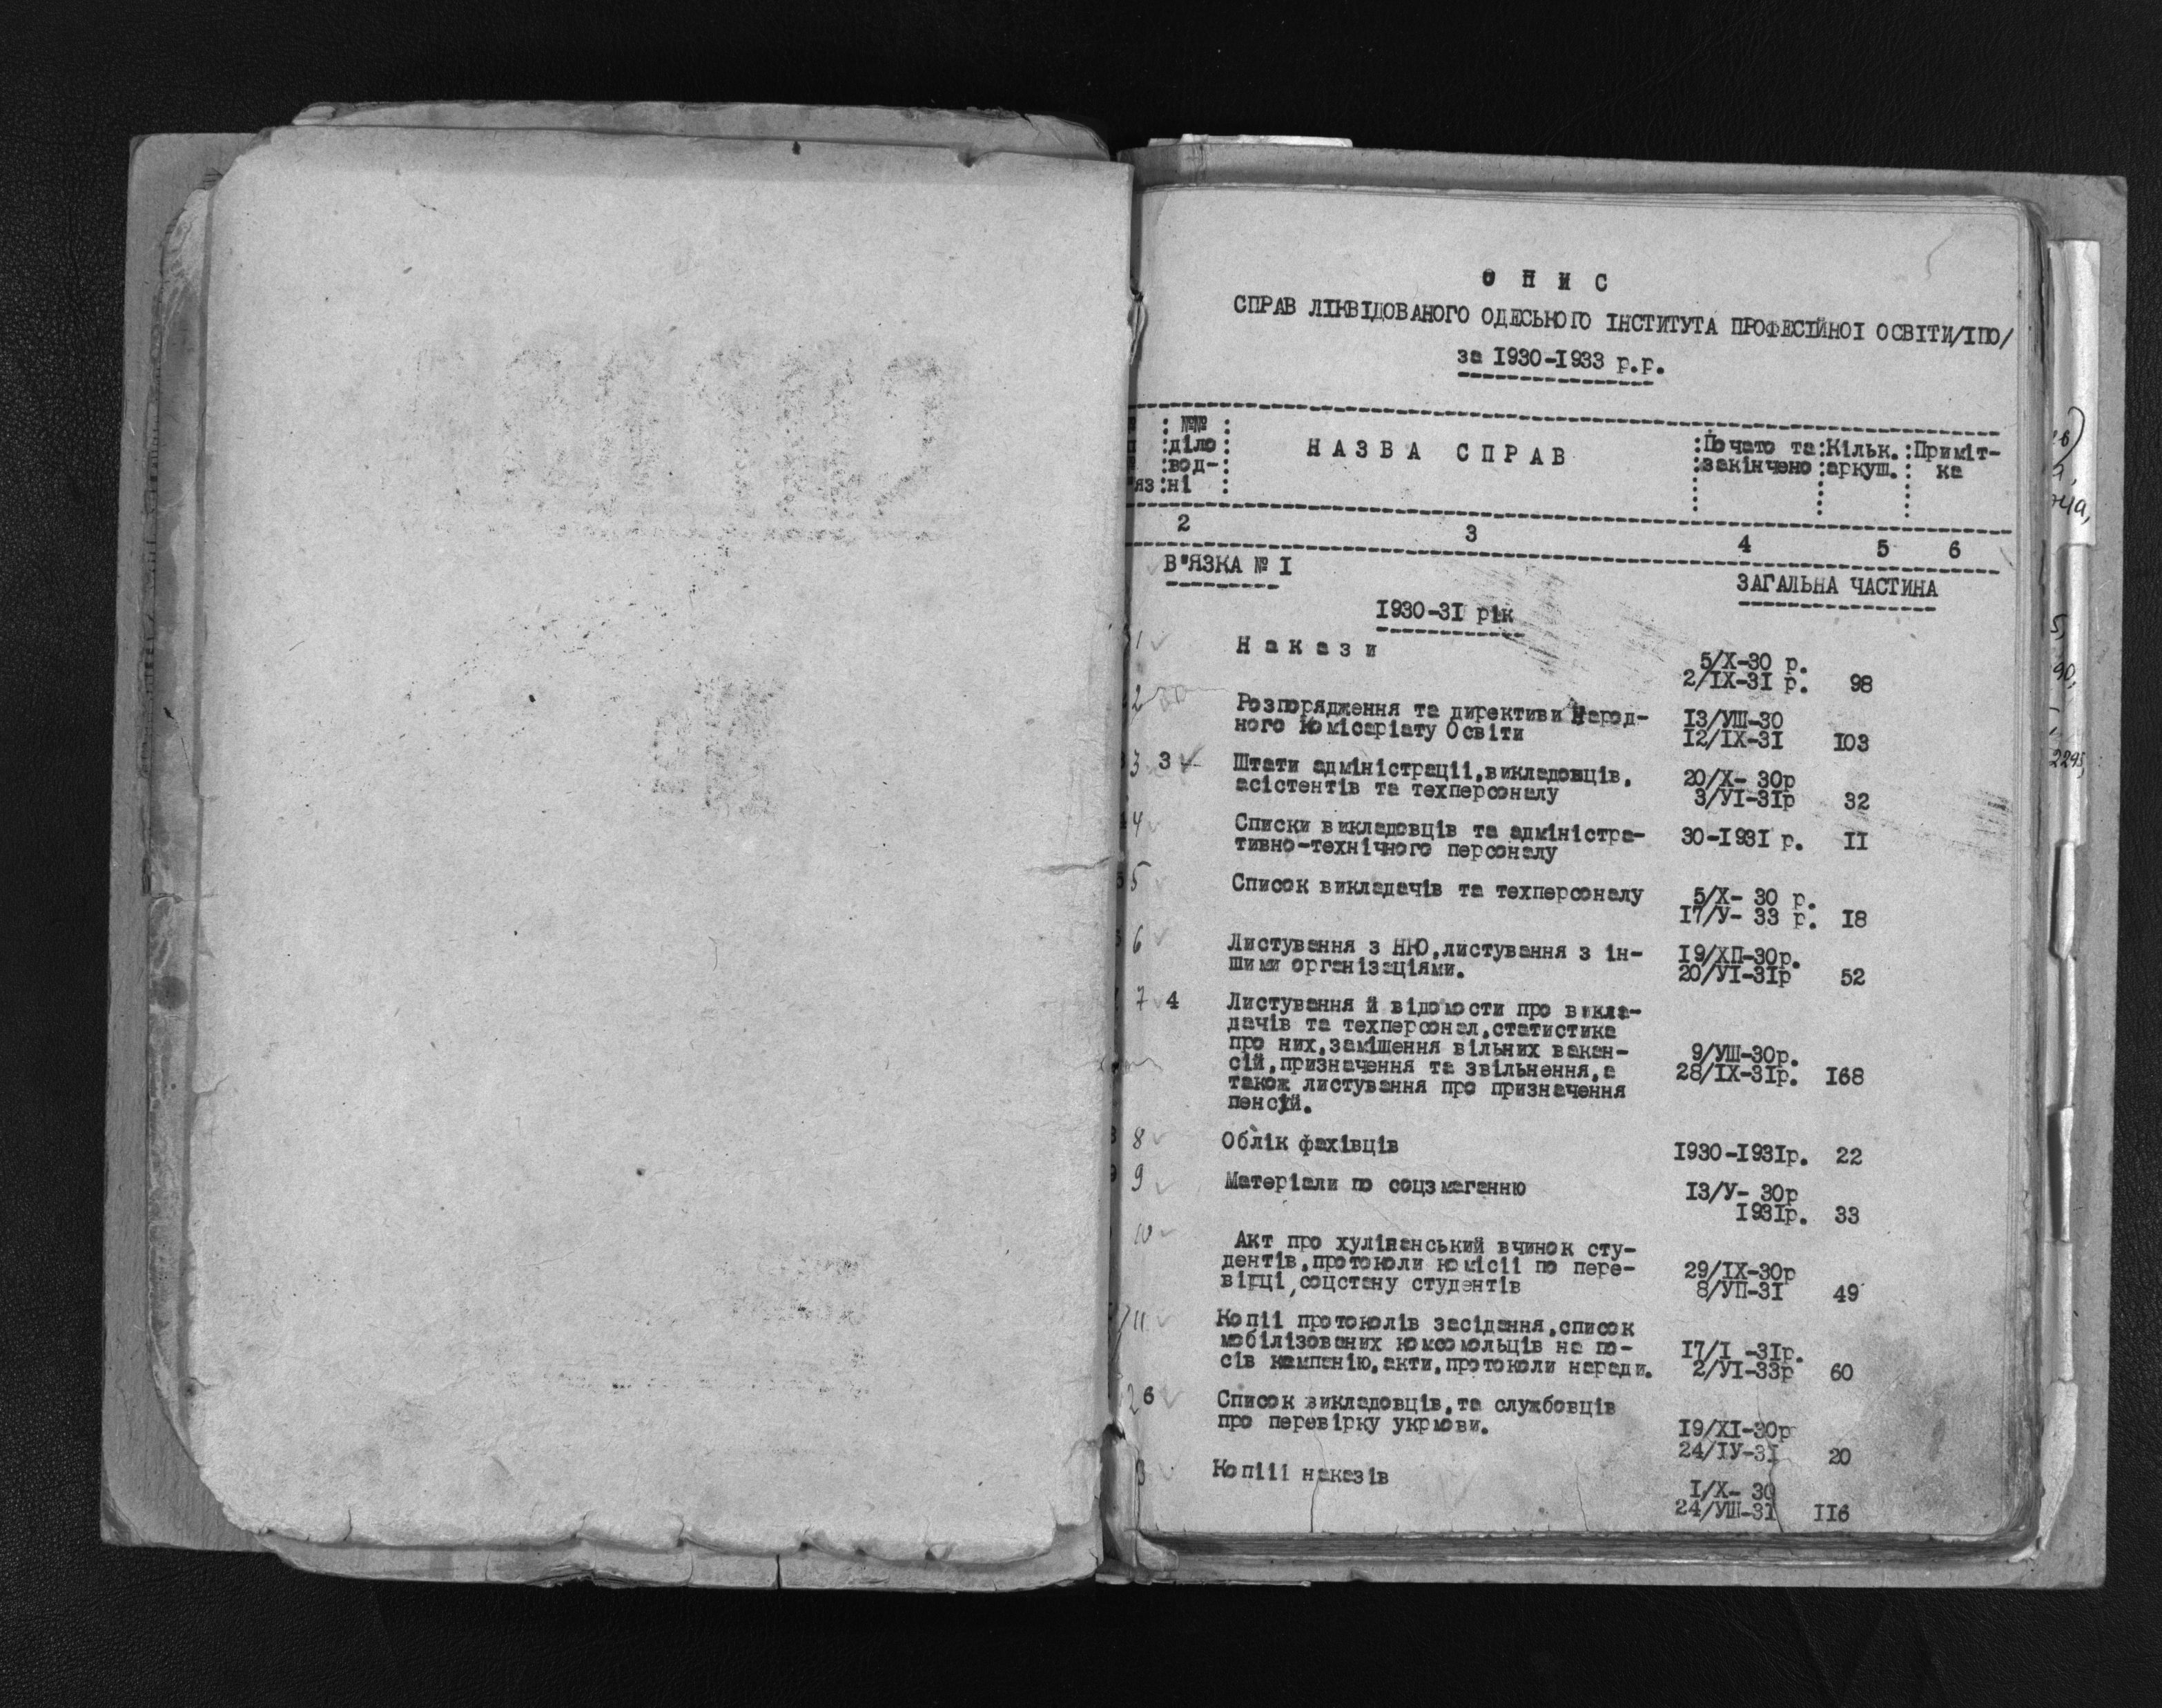 О П И С
СПРАВ ЛІКВІДОВАНОГО ОДЕСЬКОГО ІНСТИТУТА ПРОФЕСІЙНОІ ОСВІТИ/ІПО/
за 1930-1933 р.р.
№№
діло
вод-
яз ні
НАЗВА СПРАВ
Почато та
закінчено
Кільк.
аркуш.
Приміт-
ка
2 3 4 5 6
В"ЯЗКА № I
ЗАГАЛЬНА ЧАСТИНА
1930-31 рік
1 Накази 5/X-30 р.
2/IX-31 р. 98
2 Розпорядження та директиви Народ- 13/УШ-30
ного Комісаріату Освіти 12/IX-31 103
3 3 Штати адміністраціі,викладовців, 20/X- 30р
асістентів та техперсоналу 3/УІ-31р 32
4 Списки викладовців та адміністра- 30-1931 р. 11
тивно-технічного персоналу
5 Список викладачів та техперсоналу 5/X- 30 р.
17/У- 33 р. 18
6 Листування з НКО,листування з ін- 19/ХП-30р.
шими організаціями. 20/УІ-31р 52
7 4 Листування й відомости про викла-
дачів та техперсонал,статистика
про них,заміщення вільних вакан- 9/УШ-30р.
сій,призначення та звільнення,а 28/IX-31р. 168
також листування про призначення
пенсій.
8 Облік фахівців 1930-1931р. 22
9 Матеріали по соцзмаганню 13/У- 30р
1931р. 33
10 Акт про хуліганський вчинок сту-
дентів,протоколи комісіі по пере- 29/IX-30р
вірці,соцстану студентів 8/УП-31 49
11 Копіі протоколів засідання,список
мобілізованих комсомольців на по- 17/I -31р.
сів кампанію,акти,протоколи наради. 2/УІ-33р 60
2 6 Список викладовців,та службовців
про перевірку укрмови. 19/XI-30р
24/ІУ-31 20
3 Копііі наказів
I/X- 30
24/УШ-31 116
2295,